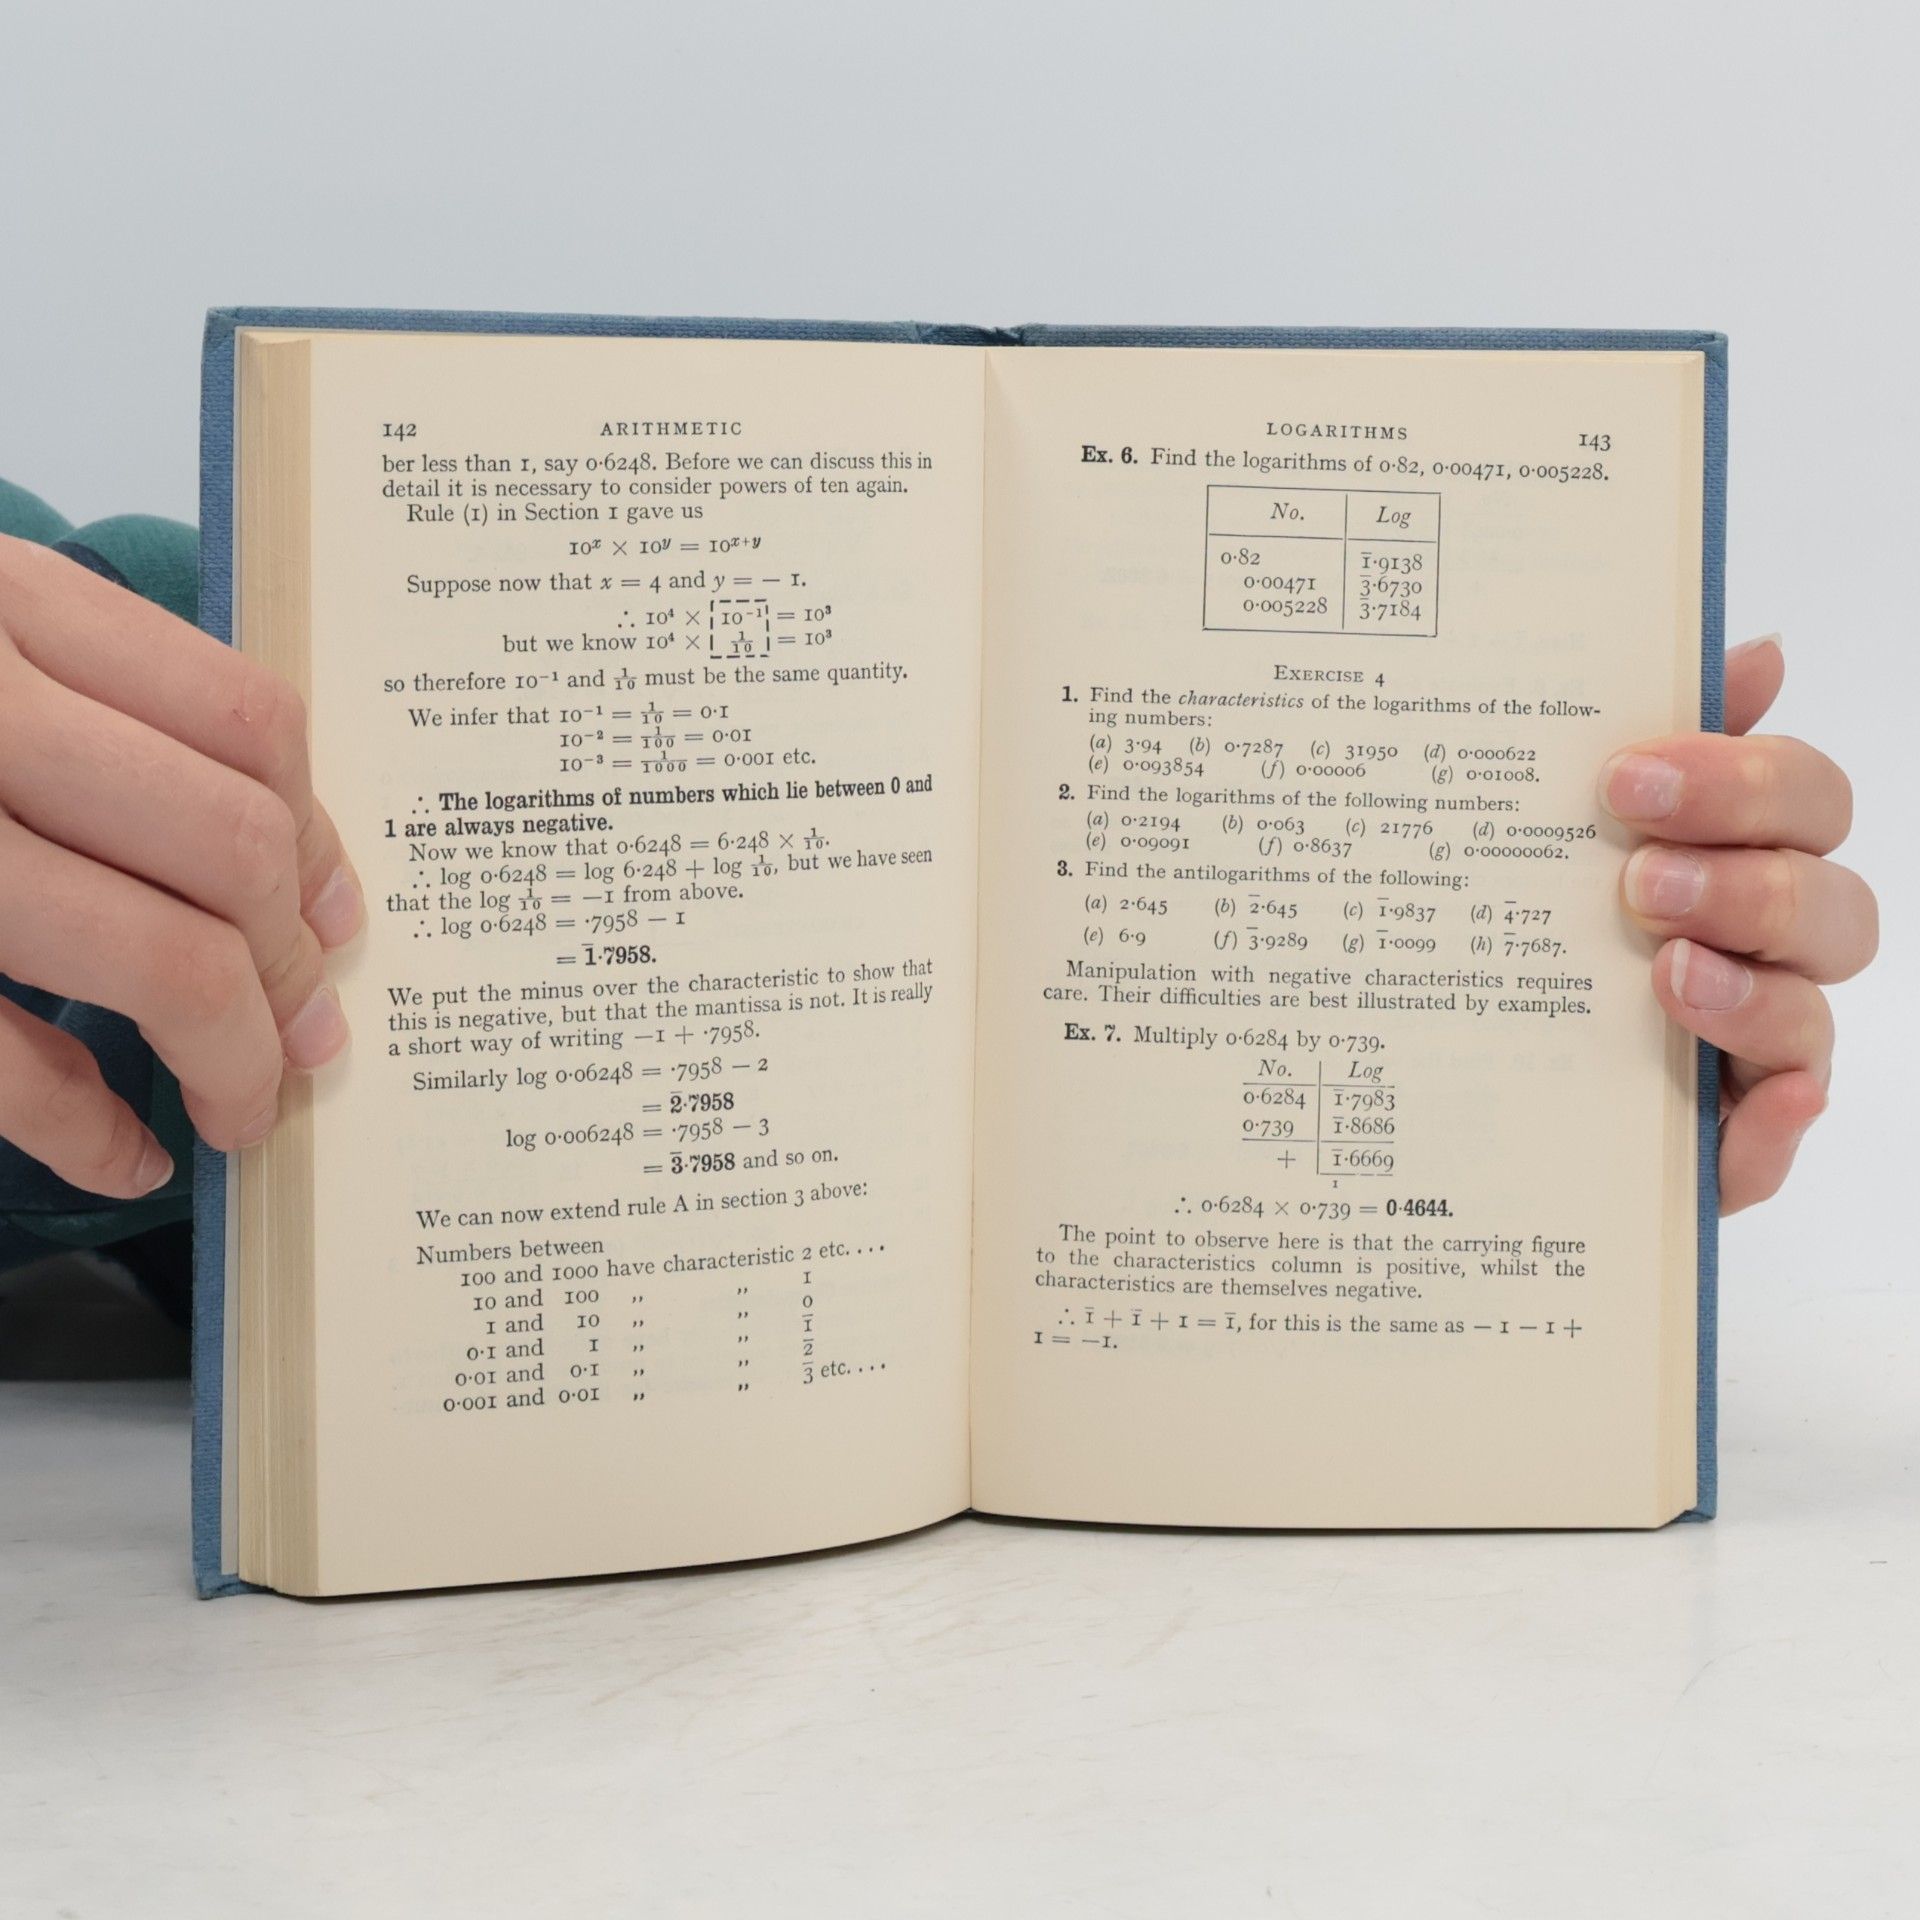 142 ARITHMETIC
ber less than 1, say 0·6248. Before we can discuss this in
detail it is necessary to consider powers of ten again.
Rule (1) in Section 1 gave us
10ˣ × 10ʸ = 10ˣ⁺ʸ
Suppose now that x = 4 and y = − 1.
∴ 10⁴ × 10⁻¹ = 10³
but we know 10⁴ × 1/10 = 10³
so therefore 10⁻¹ and 1/10 must be the same quantity.
We infer that 10⁻¹ = 1/10 = 0·1
10⁻² = 1/100 = 0·01
10⁻³ = 1/1000 = 0·001 etc.
∴ The logarithms of numbers which lie between 0 and
1 are always negative.
Now we know that 0·6248 = 6·248 × 1/10.
∴ log 0·6248 = log 6·248 + log 1/10, but we have seen
that the log 1/10 = −1 from above.
∴ log 0·6248 = ·7958 − 1
= 1̄·7958.
We put the minus over the characteristic to show that
this is negative, but that the mantissa is not. It is really
a short way of writing −1 + ·7958.
Similarly log 0·06248 = ·7958 − 2
= 2̄·7958
log 0·006248 = ·7958 − 3
= 3̄·7958 and so on.
We can now extend rule A in section 3 above:
Numbers between
100 and 1000 have characteristic 2 etc. . . .
10 and 100 ,, ,, 1
1 and 10 ,, ,, 0
0·1 and 1 ,, ,, 1̄
0·01 and 0·1 ,, ,, 2̄
0·001 and 0·01 ,, ,, 3̄ etc. . . .
LOGARITHMS 143
Ex. 6. Find the logarithms of 0·82, 0·00471, 0·005228.
No. Log
0·82 1̄·9138
0·00471 3̄·6730
0·005228 3̄·7184
EXERCISE 4
1. Find the characteristics of the logarithms of the follow-
ing numbers:
(a) 3·94 (b) 0·7287 (c) 31950 (d) 0·000622
(e) 0·093854 (f) 0·00006 (g) 0·01008.
2. Find the logarithms of the following numbers:
(a) 0·2194 (b) 0·063 (c) 21776 (d) 0·0009526
(e) 0·09091 (f) 0·8637 (g) 0·00000062.
3. Find the antilogarithms of the following:
(a) 2·645 (b) 2̄·645 (c) 1̄·9837 (d) 4̄·727
(e) 6·9 (f) 3̄·9289 (g) 1̄·0099 (h) 7̄·7687.
Manipulation with negative characteristics requires
care. Their difficulties are best illustrated by examples.
Ex. 7. Multiply 0·6284 by 0·739.
No. Log
0·6284 1̄·7983
0·739 1̄·8686
+ 1̄·6669
1
∴ 0·6284 × 0·739 = 0·4644.
The point to observe here is that the carrying figure
to the characteristics column is positive, whilst the
characteristics are themselves negative.
∴ 1̄ + 1̄ + 1 = 1̄, for this is the same as − 1 − 1 +
1 = −1.